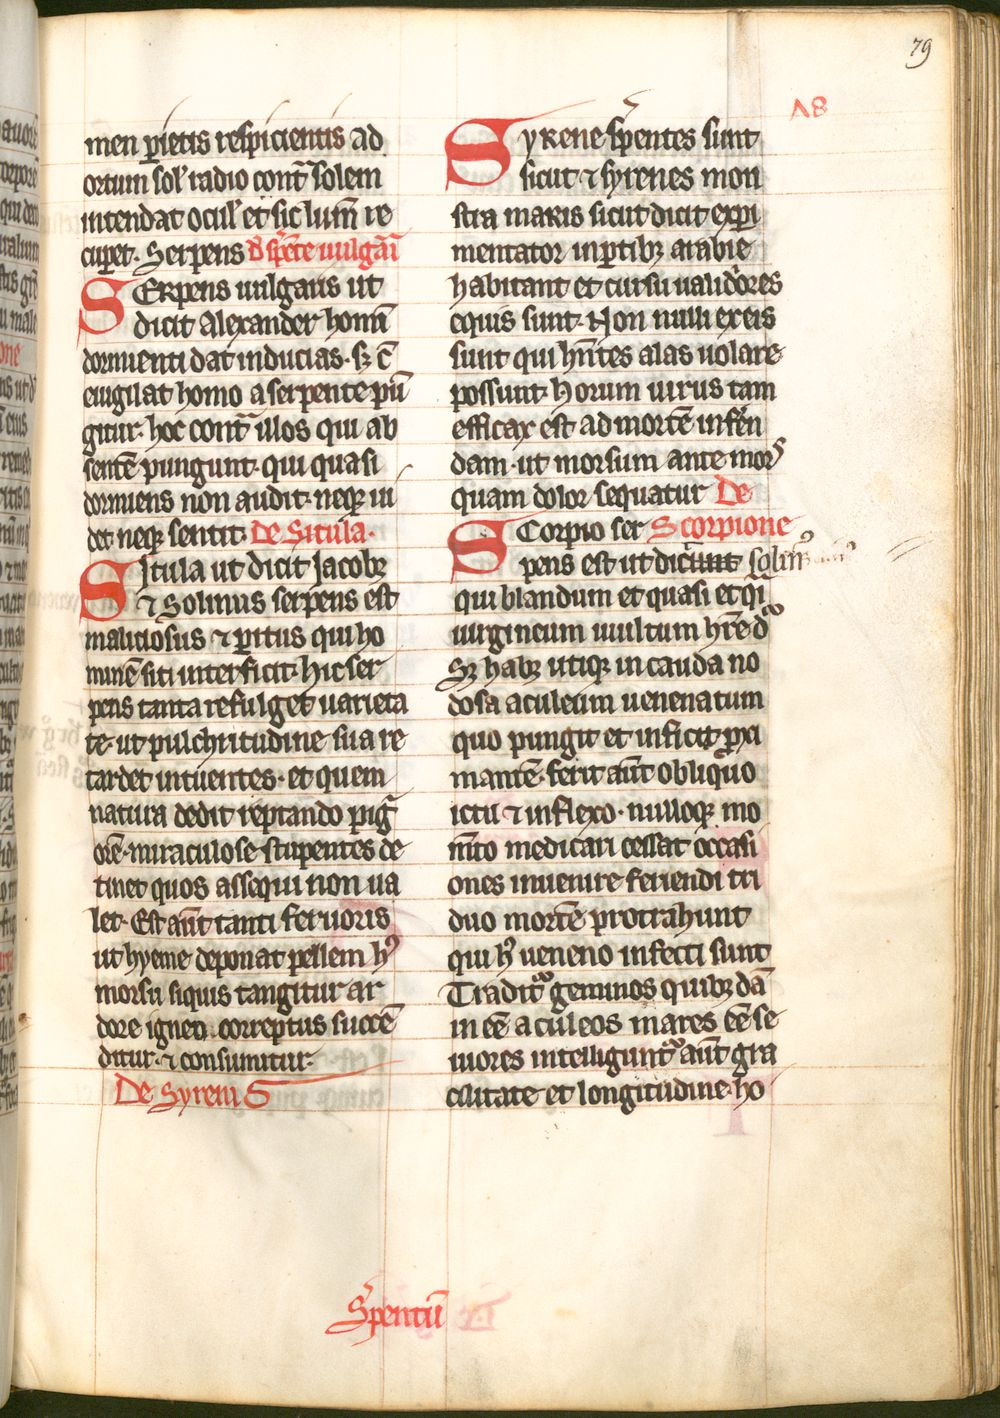 79
Λ8
men p̱ietis respicientis ad
ortum sol' radio cont̄ solem
intendat ocul' et sic lum̄ re
cup̱et. Serpens d̄ s̄pēte uulgār
SErpens uulgaris ut
dicit Alexander homī
dormienti dat inducias. sꝫ c̄
euigilat homo a serpente pū
gitur. hoc cont̄ illos qui ab
sentē pungunt. qui quasi
dormiens non audit. neqꝫ ui
det neqꝫ sentit. De Situla.
SItula ut dicit Jacobꝫ
⁊ Solinus serpens est
maliciosus ⁊ p̱itus qui ho
minē siti interficit. hic ser
pens tanta refulget uarieta
te. ut pulchritudine sua re
tardet intuentes. et quem
natura dedit reptando piḡ
orē. miraculose stupentes de
tinet quos assequi non ua
let. Est aūt tanti feruoris
ut hyeme deponat pellem hꝰ
morsu siquis tangitur ar
dore igneo correptus succē
ditur. ⁊ consumitur.
De SyreniS
SyRene s̄pentes sunt
sicut ⁊ syrenes mon
stra maris sicut dicit exp̱i
mentator in p̱tibꝫ arabie
habitant et cursu ualidiores
equis sunt. Non nulli ex eis
sunt qui hn̄tes alas uolare
possunt. horum uirus tam
efficax est ad mortē infen
dam. ut morsum ante morꝰ
quam dolor sequatur De
SCorpio ser Scorpione
pens est ut dicūnt solinꝰ
qui blandum et quasi et q̄i
uirgineum uultum hr̄e dꝛ
Sꝫ habꝫ utiqꝫ in cauda no
dosa aculeum uenenatum
quo pungit et inficit p̱xi
mantē. ferit aūt obliquo
ictu ⁊ inflexo. nulloqꝫ mo
m̄to medicari cessat occasi
ones inuenire feriendi tri
duo mortē protrahunt
qui hꝰ ueneno infecti sunt
Tradit᷑ geminos quibꝫdā
in eē aculeos mares eē se
uiores intelligunt᷑ aūt gra
cilitate et longitudine. ho
S̄pentū